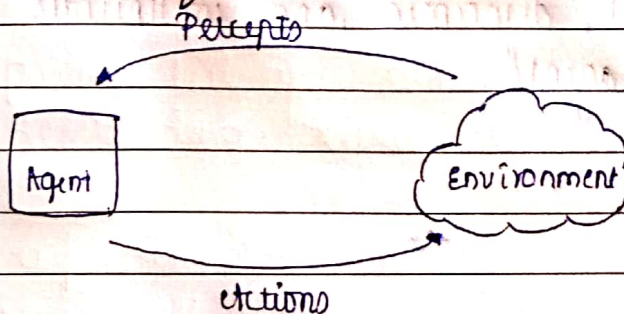 Percepts
Agent
Environment
Actions